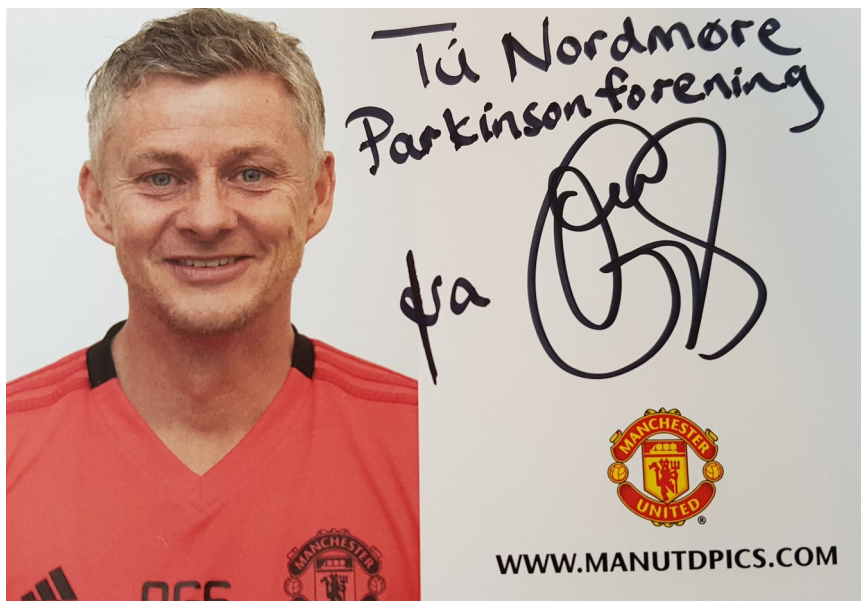 Til Nordmøre
Parkinsonforening
fra
MANCHESTER
UNITED
®
WWW.MANUTDPICS.COM
OGS
MANCHESTER